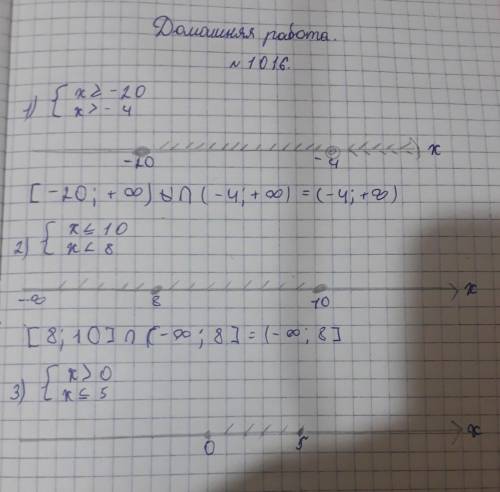 Домашняя работа.
№1016.
1) { x ≥ -20
x > -4
-20 -4 x
[-20; +∞) ∩ (-4; +∞) = (-4; +∞)
2) { x ≤ 10
x < 8
-∞ 8 10 x
[8; 10] ∩ (-∞; 8] = (-∞; 8]
3) { x > 0
x ≤ 5
0 5 x